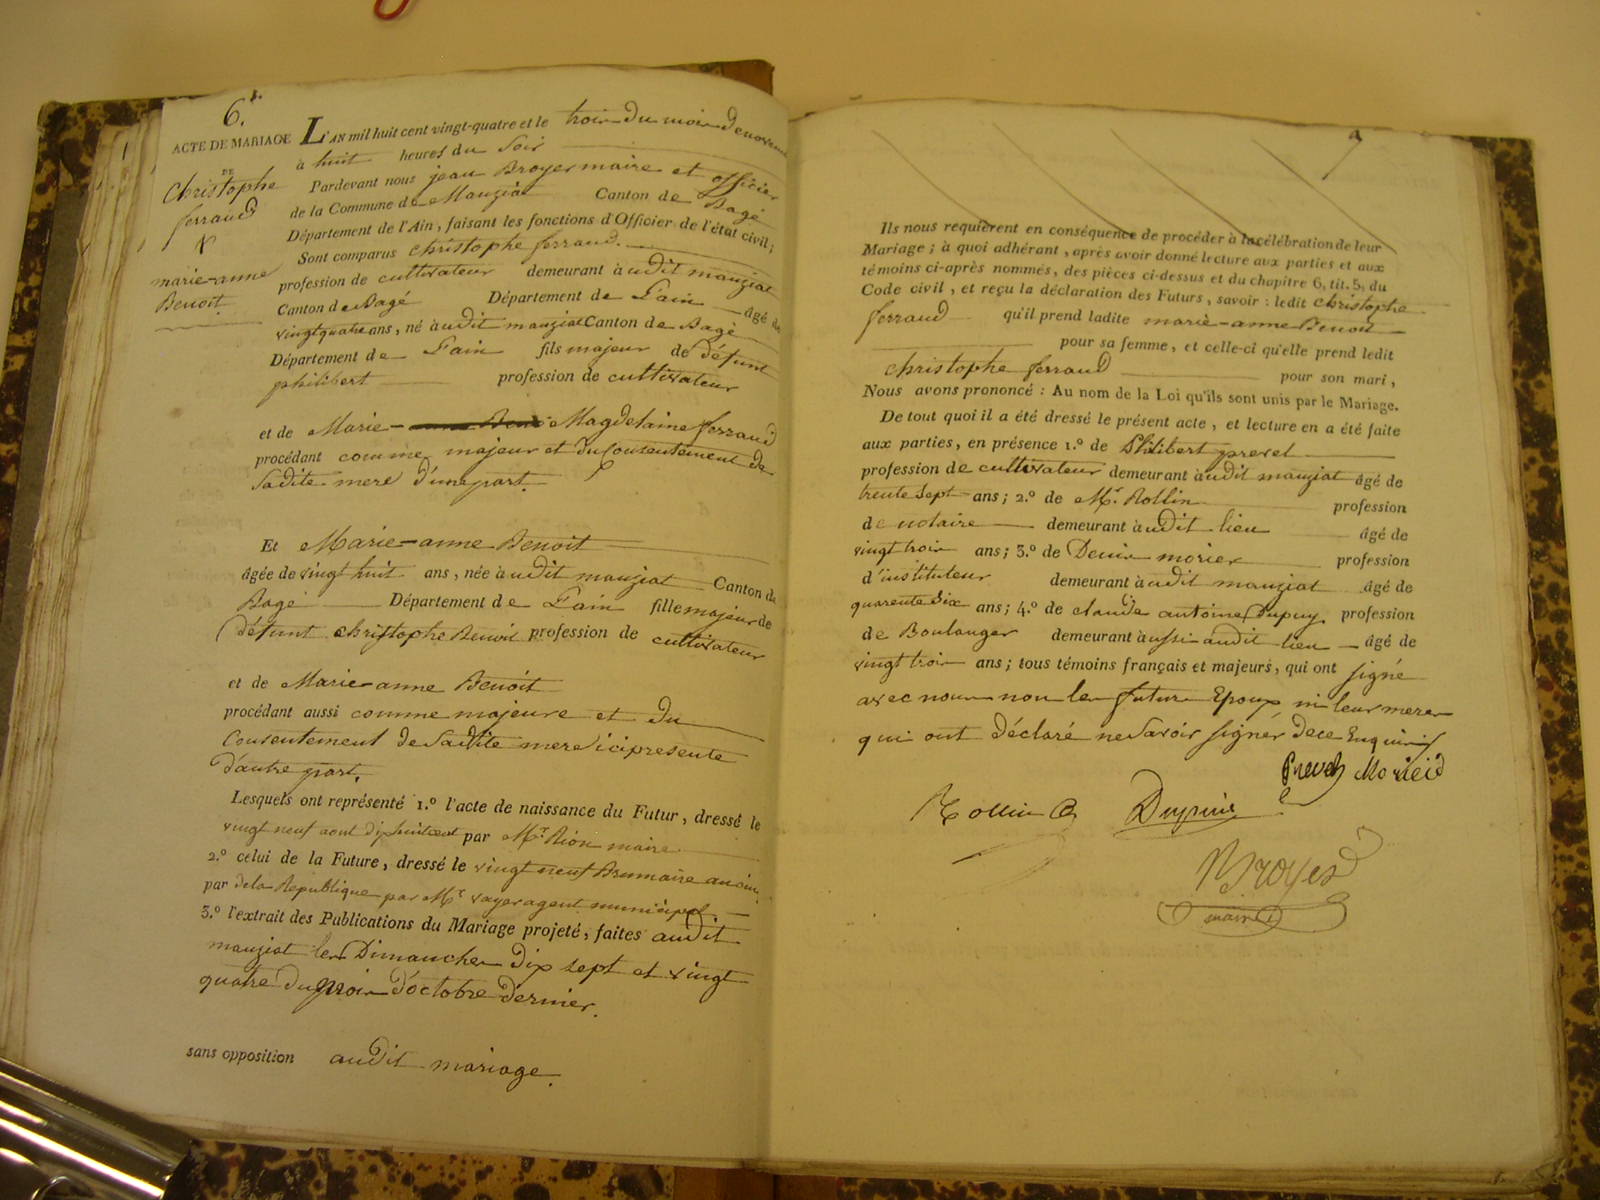 6.
ACTE DE MARIAGE
DE
Christophe
ferraud
&
marie-anne
Benoit
L'AN mil huit cent vingt-quatre et le trois du mois de novembre
à huit heures du soir
Pardevant nous jean Broyer maire et officier
de la Commune de Manziat Canton de Bagé
Département de l'Ain, faisant les fonctions d'Officier de l'état civil;
Sont comparus christophe ferraud.
profession de cultivateur demeurant à udit manziat
Canton de Bagé Département de L'ain âgé de
vingtquatre ans, né à udit manziat Canton de Bagé
Département de L'ain fils majeur de défunt
philibert profession de cultivateur
et de Marie- Magdelaine ferraud
procédant comme majeur et du Consentement de
Sadite mere d'une part.
Et Marie-anne Benoit
âgée de vingt huit ans, née à udit manziat Canton de
Bagé Département de L'ain fille majeur de
défunt christophe Benoit profession de cultivateur
et de Marie-anne Benoit
procédant aussi comme majeure et du
Consentement de Saditte mere ici presente
d'autre part.
Lesquels ont représenté 1.º l'acte de naissance du Futur, dressé le
vingt neuf aout dixhuitcent par Mr. Rion maire
2.º celui de la Future, dressé le vingt neuf Brumaire an cinq
par dela Republique par Mr. vayer agent municipal.
3.º l'extrait des Publications du Mariage projeté, faites audit
manziat les Dimanches dix sept et vingt
quatre du mois d'octobre dernier.
sans opposition audit mariage.
Ils nous requièrent en conséquence de procéder à la célébration de leur
Mariage; à quoi adhérant, après avoir donné lecture aux parties et aux
témoins ci-après nommés, des pièces ci-dessus et du chapitre 6, tit. 5, du
Code civil, et reçu la déclaration des Futurs, savoir: ledit christophe
ferraud qu'il prend ladite marie-anne Benoit
pour sa femme, et celle-ci qu'elle prend ledit
christophe ferraud pour son mari,
Nous avons prononcé: Au nom de la Loi qu'ils sont unis par le Mariage.
De tout quoi il a été dressé le présent acte, et lecture en a été faite
aux parties, en présence 1.º de Philibert prevel
profession de cultivateur demeurant à udit manziat âgé de
trente sept ans; 2.º de Mr. Rollin profession
de notaire demeurant à udit lieu âgé de
vingt trois ans; 3.º de Denis morier profession
d'instituteur demeurant à udit manziat âgé de
quarente Six ans; 4.º de claude antoine Dupuy profession
de Boulanger demeurant à ussi audit lieu âgé de
vingt trois ans; tous témoins français et majeurs, qui ont signé
avec nous non les futurs Epoux, ni leur meres
qui ont déclaré ne Savoir signer dece Enquis
Prevel Morieid
Rollin Dupuis
Broyer
maire